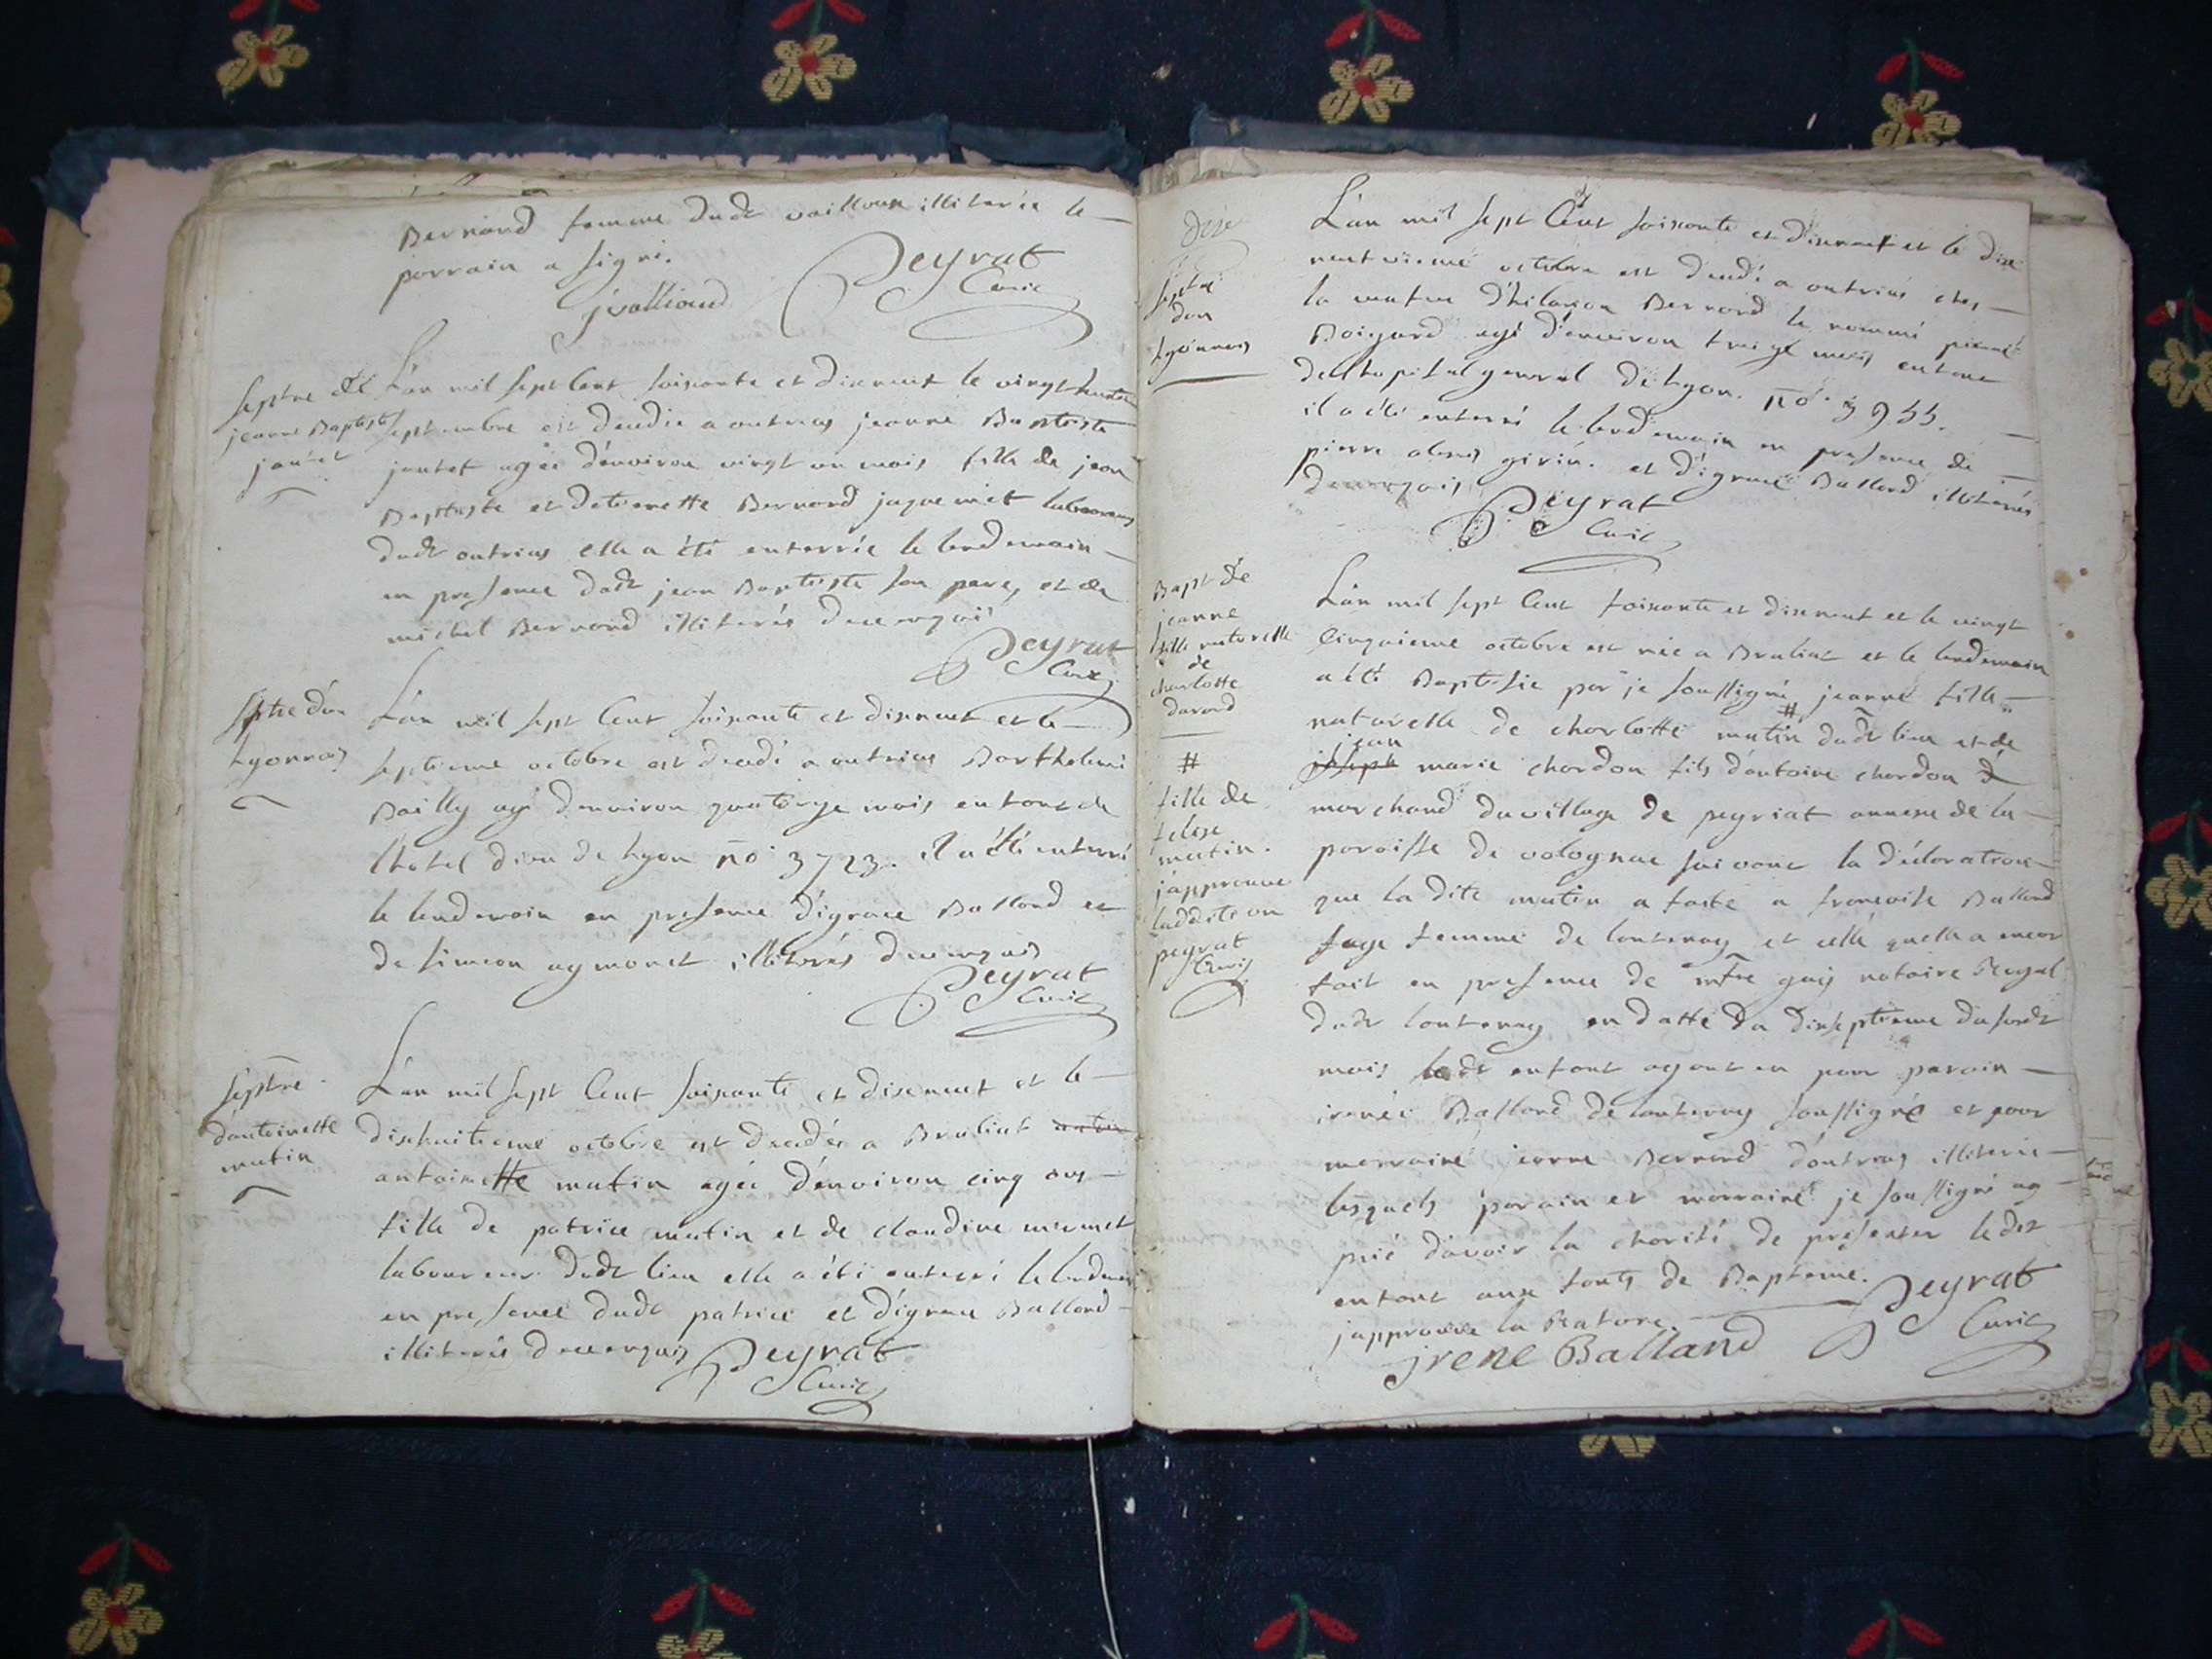 Bernard femme dudt vailloux illiterée le
parrain a signé.
jvalliand Peyrat
Curé
septre de
jeanne Baptiste
jantet
L'an mil sept Cent soixante et dixneuf le vingt huit
septembre est decedée a outrias jeanne Baptiste
jantet agée d'environ vingt un mois fille de jean
Baptiste et detienette Bernard jaquemet laboureurs
dudt outrias elle a été enterrée le lendemain
en presence dudt jean Baptiste son pere, et de
michel Bernard illiterés de ce enquis
Peyrat
Curé
sptre d'un
Lyonnois
L'an mil sept Cent soixante et dixneuf et le
septieme octobre est decedé a outrias Barthelemi
Bailly agé d'environ quatorze mois enfant de
l'hotel dieu de Lyon no. 3723. il a été enterré
le lendemain en presence d'ignace Balland et
de simeon aymonet illiterés de ce enquis
Peyrat
Curé
séptre
d'antoinette
mutin
L'an mil sept Cent soixante et dixneuf et le
dixhuitieme octobre est decedée a Brulliat
antoinette mutin agée d'environ cinq ans
fille de patrice mutin et de claudine mermet
laboureur dudt lieu elle a été enterré le lendemain
en presence dudt patrice et d'ignace Balland
illiterés de ce enquis Peyrat
Curé
septre
d'un
Lyonnois
L'an mil sept Cent soixante et dixneuf et le dix
neufvieme octobre est decedé a outrias ches
la veuve d'hilarion Bernard le nommé pierre
Boigard agé d'environ treize mois enfant
de l'hopital general de Lyon. no. 3955.
il a été enterré le lendemain en presence de
pierre alexis girin. et d'ignace Balland illiterés
de ce enquis Peyrat
Curé
Bapt de
jeanne
fille naturelle
de
charlotte
L'an mil sept Cent soixante et dixneuf et le vingt
Cinquieme octobre est née a Brulliat et le lendemain
a été Baptisée par je soussigné jeanne fille
naturelle de charlotte mutin # dudt lieu et de
jean
joseph marie chardon fils d'antoine chardon
marchand du village de peyriat annexe de la
paroisse de volognat suivant la déclaration
que la dite mutin a faite a françoise Balland
sage femme de lantenay et celle quelle a encor
fait en presence de mtre guy notaire Royal
dudt lantenay en datte du dixseptieme du susdt
mois ledt enfant ayant eu pour parain
irenée Balland de lantenay soussigné et pour
marraine jeanne Bernard d'outrias illiterée
lesquels parain et marraine je soussigné ay
prié d'avoir la charité de présenter ledit
enfant aux fonts de Bapteme. Peyrat
j'approuve la Rature. Curé
jrene Balland
#
fille de
felise
mutin.
japprouve
laddition
peyrat
Curé